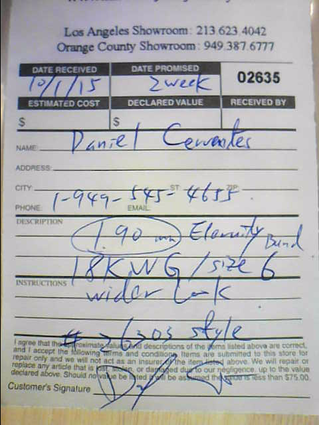 Los Angeles Showroom: 213.623.4042
Orange County Showroom: 949.387.6777
DATE RECEIVED DATE PROMISED
10/1/15 2 week 02635
ESTIMATED COST DECLARED VALUE RECEIVED BY
$ $
NAME: Daniel Cervantes
ADDRESS:
CITY ST ZIP
PHONE: 1-949-545-4655 EMAIL:
DESCRIPTION
1.90 mm Eternity Band
18K WG / size 6
INSTRUCTIONS wider look
6303 style
I agree that the approximate value and descriptions of the items listed above are correct,
and I accept the following terms and conditions. Items are submitted to this store for
repair only and we will not act as an insurer of the item listed above. We will repair or
replace any article that is lost, stolen, or damaged due to our negligence, up to the value
declared above. Should no value be listed it will be assumed the value is less than $75.00.
Customer's Signature